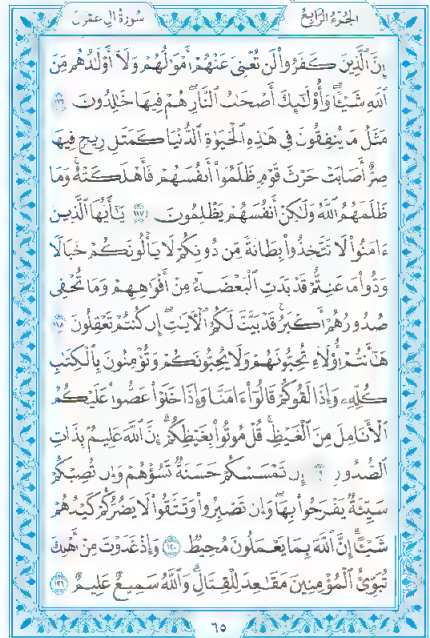 سُورَةُ آلِ عِمْرَانَ
الجُزْءُ الرَّابِعُ
إِنَّ الَّذِينَ كَفَرُوا لَن تُغْنِيَ عَنْهُمْ أَمْوَالُهُمْ وَلَا أَوْلَادُهُم مِّنَ
اللَّهِ شَيْئًا ۖ وَأُولَٰئِكَ أَصْحَابُ النَّارِ ۚ هُمْ فِيهَا خَالِدُونَ ١١٦
مَثَلُ مَا يُنفِقُونَ فِي هَٰذِهِ الْحَيَوٰةِ الدُّنْيَا كَمَثَلِ رِيحٍ فِيهَا
صِرٌّ أَصَابَتْ حَرْثَ قَوْمٍ ظَلَمُوا أَنفُسَهُمْ فَأَهْلَكَتْهُ ۚ وَمَا
ظَلَمَهُمُ اللَّهُ وَلَٰكِنْ أَنفُسَهُمْ يَظْلِمُونَ ١١٧ يَا أَيُّهَا الَّذِينَ
ءَامَنُوا لَا تَتَّخِذُوا بِطَانَةً مِّن دُونِكُمْ لَا يَأْلُونَكُمْ خَبَالًا
وَدُّوا مَا عَنِتُّمْ قَدْ بَدَتِ الْبَغْضَاءُ مِنْ أَفْوَاهِهِمْ وَمَا تُخْفِي
صُدُورُهُمْ أَكْبَرُ ۚ قَدْ بَيَّنَّا لَكُمُ الْآيَاتِ ۖ إِن كُنتُمْ تَعْقِلُونَ ١١٨
هَٰأَنتُمْ أُولَاءِ تُحِبُّونَهُمْ وَلَا يُحِبُّونَكُمْ وَتُؤْمِنُونَ بِالْكِتَٰبِ
كُلِّهِ وَإِذَا لَقُوكُمْ قَالُوا ءَامَنَّا وَإِذَا خَلَوْا عَضُّوا عَلَيْكُمُ
الْأَنَامِلَ مِنَ الْغَيْظِ ۚ قُلْ مُوتُوا بِغَيْظِكُمْ ۗ إِنَّ اللَّهَ عَلِيمٌ بِذَاتِ
الصُّدُورِ إِن تَمْسَسْكُمْ حَسَنَةٌ تَسُؤْهُمْ وَإِن تُصِبْكُمْ
سَيِّئَةٌ يَفْرَحُوا بِهَا ۖ وَإِن تَصْبِرُوا وَتَتَّقُوا لَا يَضُرُّكُمْ كَيْدُهُمْ
شَيْئًا ۗ إِنَّ اللَّهَ بِمَا يَعْمَلُونَ مُحِيطٌ ١٢٠ وَإِذْ غَدَوْتَ مِنْ أَهْلِكَ
تُبَوِّئُ الْمُؤْمِنِينَ مَقَاعِدَ لِلْقِتَالِ ۗ وَاللَّهُ سَمِيعٌ عَلِيمٌ ١٢١
٦٥